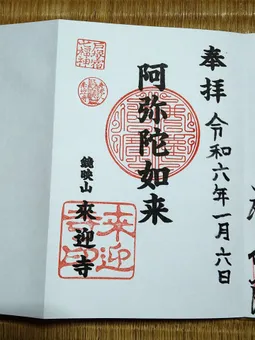 奉拝
令和六年一月六日
阿弥陀如来
鏡映山
来迎寺
来迎
寺印